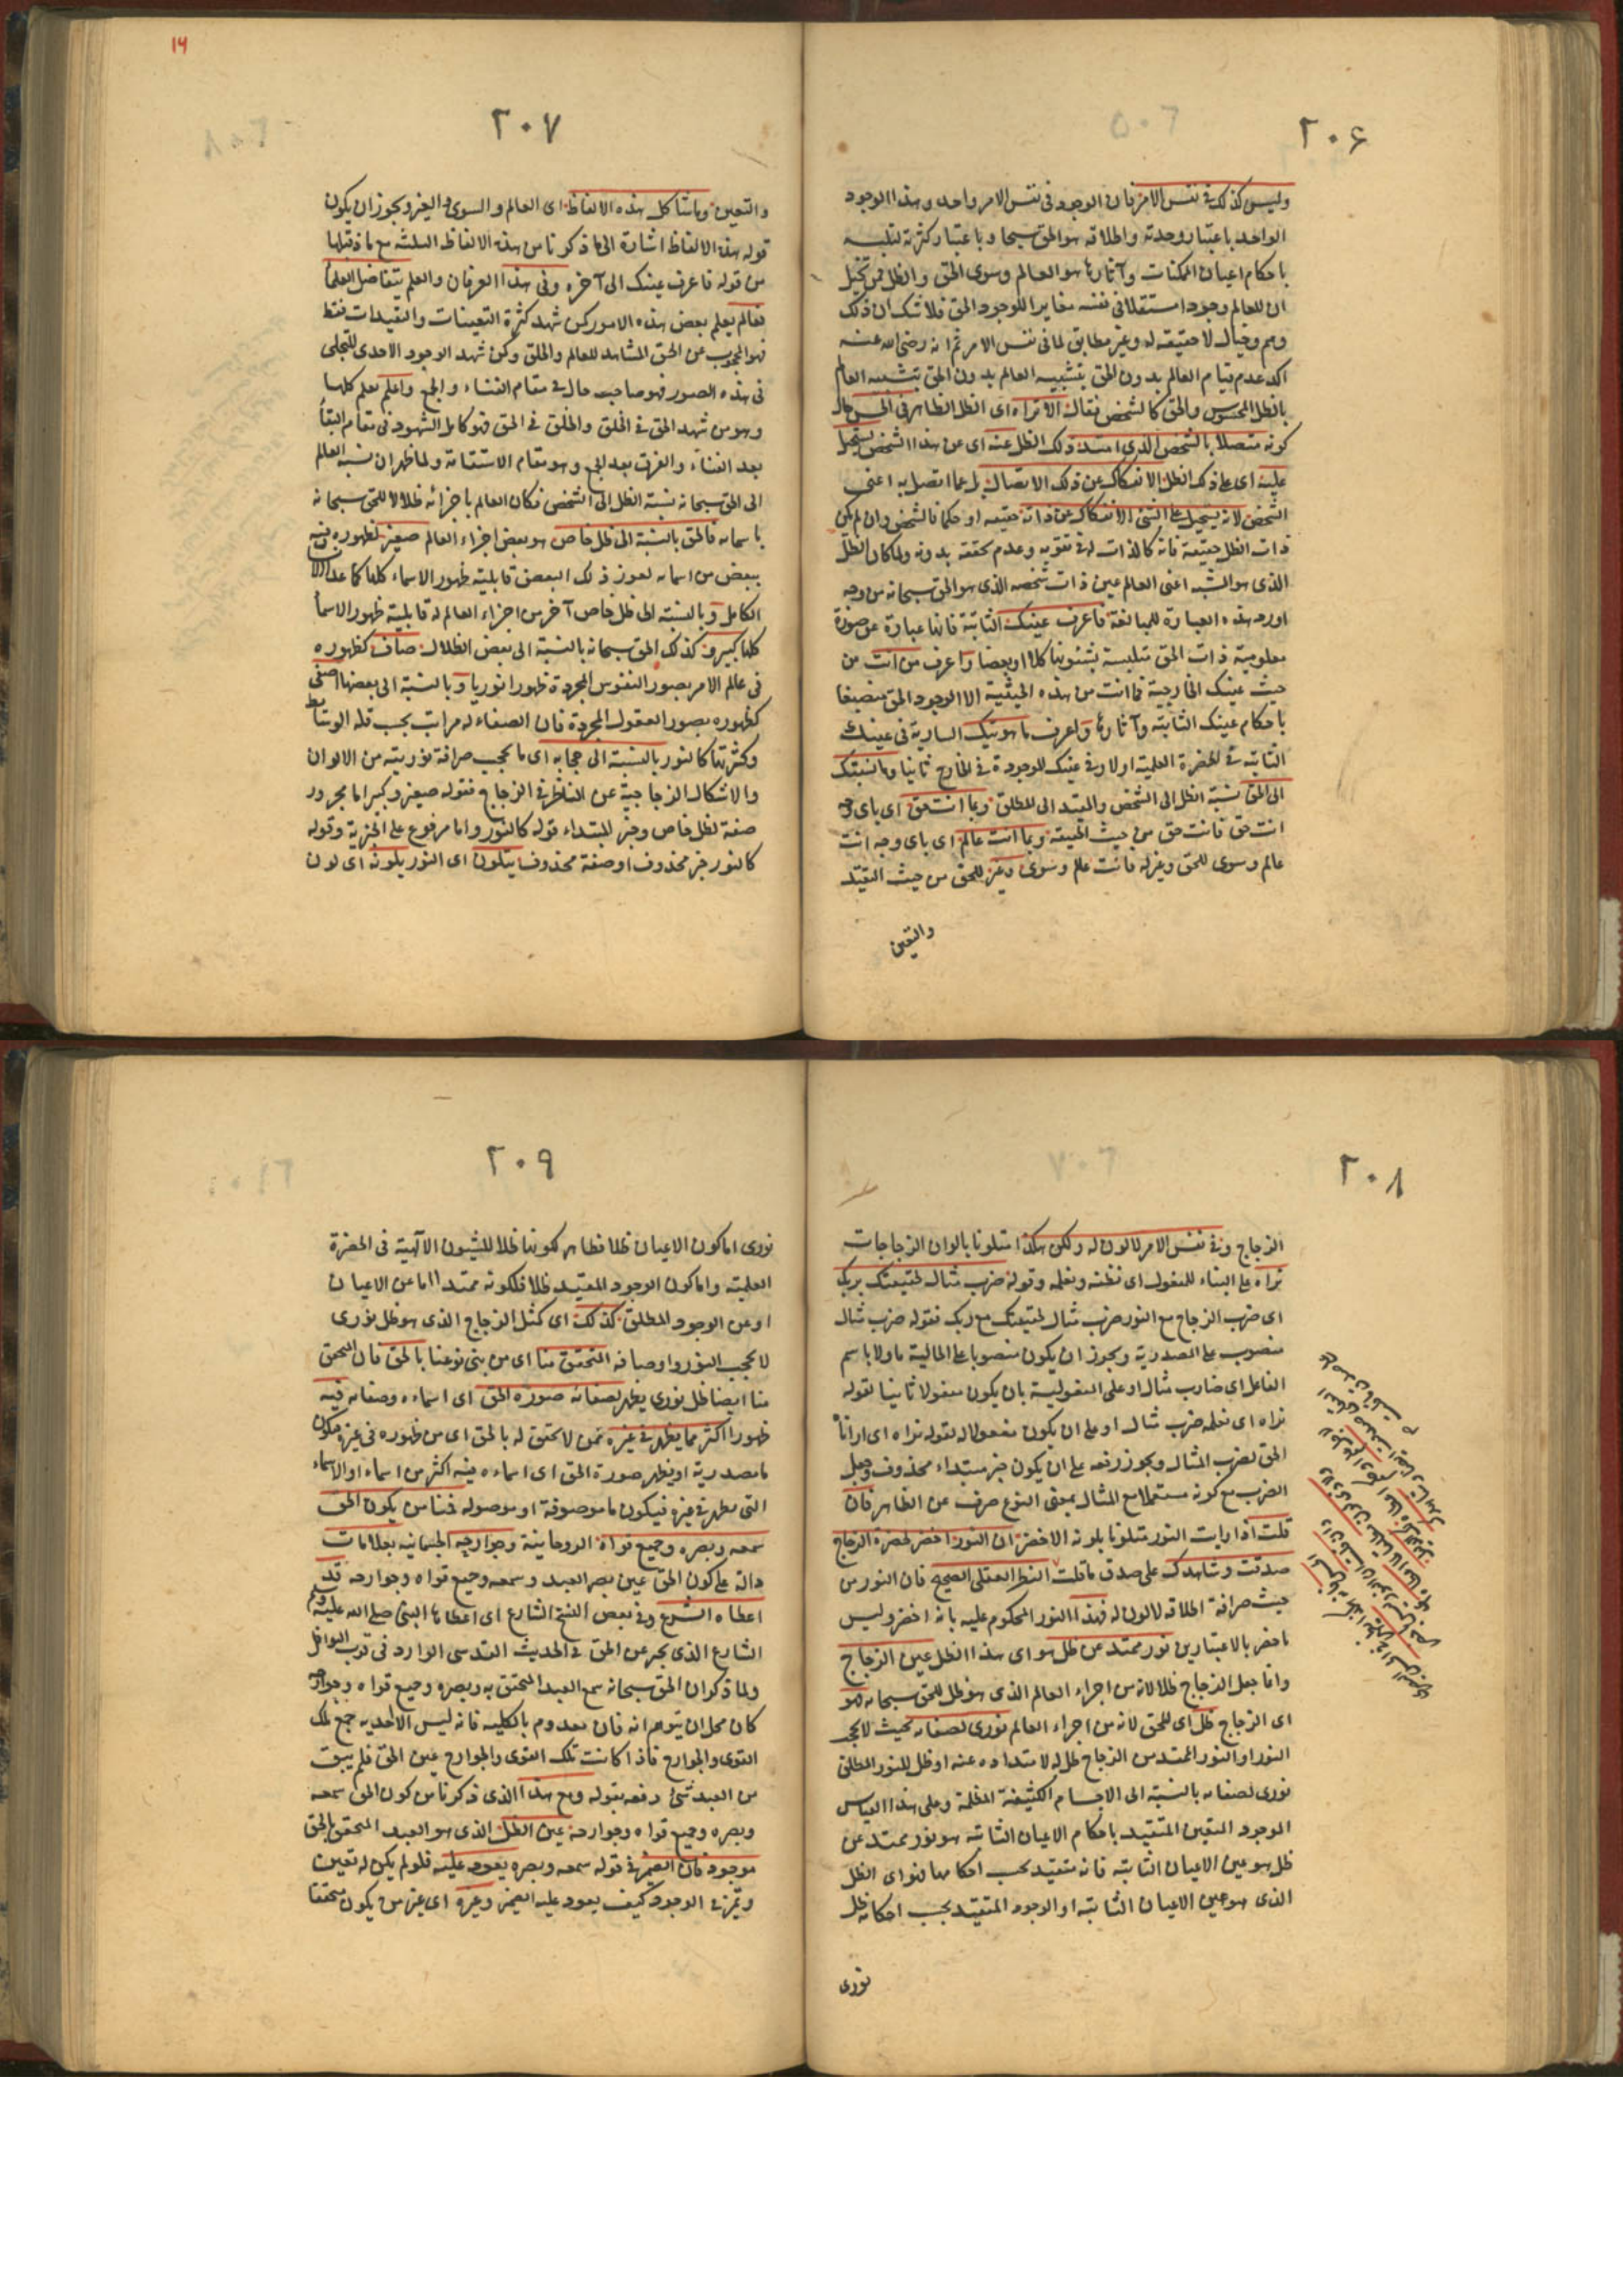 ٢٠۶
وليس كذلك في نفس الامر فان الوجود في نفس الامر واحد وهذا الوجود
الواحد باعتبار وحدته واطلاقه هو الحق سبحانه وباعتبار كثرته لتلبسه
باحكام اعيان الممكنات وآثارها هو العالم وسوى الحق والظل فمن تخيل
ان للعالم وجودا مستقلا في نفسه مغايرا للوجود الحق فلا شك ان ذلك
وهم وخيال لا حقيقة له وغير مطابق لما في نفس الامر ثم انه رضى الله عنه
اكد عدم قيام العالم بدون الحق بتشبيه العالم بدون الحق بتشبيه العالم
بالظل المحسوس والحق كالشخص فقال الا تراه اى الظل الظاهر في الحس حال
كونه متصلا بالشخص الذى امتد ذلك الظل عنه اى عن هذا الشخص يستحيل
عليه اى على ذلك الظل الانفكاك عن ذلك الاتصال بل عما اتصل به اعنى
الشخص لانه يستحيل على الشئ الانفكاك عن ذاته حقيقة او حكما فالشخص وان لم يكن
ذات الظل حقيقة فانه كالذات له في تقومه وعدم تحققه بدونه ولما كان الظل
الذى هو المشبه اعنى العالم عين ذات شخصه الذى هو الحق سبحانه من وجه
اورد هذه العبارة للمبالغة فاعرف عينك الثابتة فانها عبارة عن صورة
معلومية ذات الحق متلبسة بشئونها كلا او بعضا واعرف من انت من
حيث عينك الخارجية فما انت من هذه الحيثية الا الوجود الحق منصبغا
باحكام عينك الثابتة وآثارها واعرف ما هويتك السارية في عينك
الثابتة في الحضرة العلمية اولا وفي عينك الموجودة في الخارج ثانيا وما نسبتك
الى الحق نسبة الظل الى الشخص والمقيد الى المطلق وبما انت حق اى باى وجه
انت حق فانت حق من حيث الحقيقة وبما انت عالم اى باى وجه انت
عالم وسوى للحق وغير له فانت عالم وسوى وغير للحق من حيث التقيد
والتعين
١٦
٢٠٧
والتعين وما شاكل هذه الالفاظ اى العالم والسوى والغير ويجوز ان يكون
قوله هذه الالفاظ اشارة الى ما ذكرنا من هذه الالفاظ الثلثة مع ما قبلها
من قوله فاعرف عينك الى آخره وفي هذا العرفان والعلم يتفاضل العلماء
فعالم يعلم بعض هذه الامور كمن شهد كثرة التعينات والتقيدات فقط
فهو المحجوب عن الحق المشاهد للعالم والخلق وكمن شهد الوجود الاحدى المتجلى
في هذه الصور فهو صاحب حال في مقام الفناء والجمع واعلم يعلم كلها
وهو من شهد الحق في الخلق والخلق في الحق فهو كامل الشهود في مقام البقاء
بعد الفناء والفرق بعد الجمع وهو مقام الاستقامة ولما ظهر ان نسبة العالم
الى الحق سبحانه نسبة الظل الى الشخص فكان العالم باجزائه ظلالا للحق سبحانه
باسمائه فالحق بالنسبة الى ظل خاص هو بعض اجزاء العالم صغير لظهوره فيه
ببعض من اسمائه لعوز ذلك البعض قابلية ظهور الاسماء كلها كما عدا الانسان
الكامل وبالنسبة الى ظل خاص آخر من اجزاء العالم له قابلية ظهور الاسماء
كلها كبير وكذلك الحق سبحانه بالنسبة الى بعض الظلال صاف كظهوره
في عالم الامر بصور النفوس المجردة ظهورا نوريا وبالنسبة الى بعضها اصفى
كظهوره بصور العقول المجردة فان الصفاء له مراتب بحسب قلة الوسائط
وكثرتها كالنور بالنسبة الى حجابه اى ما يحجب صرافة نوريته من الالوان
والاشكال الزجاجية عن الناظر في الزجاج فقوله صغير وكبير اما مجرور
صفة لظل خاص وخبر المبتداء قوله كالنور واما مرفوع على الخبرية وقوله
كالنور خبر محذوف او صفة محذوف يتلون اى النور بلونه اى لون
٢٠٨
الزجاج وفي نفس الامر لا لون له ولكن هكذا متلونا بالوان الزجاجات
تراه على البناء للمفعول اى تظنه وتعلمه وقوله ضرب مثال لحقيقتك بربك
اى ضرب الزجاج مع النور ضرب مثال لحقيقتك مع ربك فقوله ضرب مثال
منصوب على المصدرية ويجوز ان يكون منصوبا على الحالية ماولا باسم
الفاعل اى ضارب مثال او على المفعولية بان يكون مفعولا ثانيا لقوله
تراه اى تعلمه ضرب مثال او على ان يكون مفعولا له لقوله تراه اى ارانا
الحق لضرب المثال ويجوز رفعه على ان يكون خبر مبتداء محذوف وجعل
الضرب مع كونه مستعملا مع المثال بمعنى النوع صرف عن الظاهر فان
قلت اذا رايت النور متلونا بلونه الاخضر ان النور اخضر لخضرة الزجاج
صدقت وشاهدك على صدق ما قلت النظر العقلى الصحيح فان النور من
حيث صرافة اطلاقه لا لون له فهذا النور المحكوم عليه بانه اخضر وليس
باخضر بالاعتبارين نور ممتد عن ظل هو اى هذا الظل عين الزجاج
وانما جعل الزجاج ظلا لانه من اجزاء العالم الذى هو ظل للحق سبحانه فهو
اى الزجاج ظل اى للحق لانه من اجزاء العالم نورى لصفائه بحيث لا يحجب
النور او النور الممتد من الزجاج ظل له لامتداده عنه او ظل للنور المطلق
نورى لصفائه بالنسبة الى الاجسام الكثيفة المظلمة وعلى هذا القياس
الموجود المتعين المتقيد باحكام الاعيان الثابتة هو نور ممتد عن
ظل هو عين الاعيان الثابتة فانه متقيد بحسب احكامها فهو اى الظل
الذى هو عين الاعيان الثابتة او الوجود المتقيد بحسب احكامه ظل
نورى
٢٠٩
نورى اما كون الاعيان ظلا فظاهر لكونها ظلا للشيون الآلهية في الحضرة
العلمية واما كون الوجود المقيد ظلا فلكونه ممتدا اما عن الاعيان
او عن الوجود المطلق كذلك اى كمثل الزجاج الذى هو ظل نورى
لا يحجب النور واوصافه المتحقق منا اى من بنى نوعنا بالحق فان المتحقق
منا ايضا ظل نورى يظهر لصفائه صورة الحق اى اسماءه وصفاته فيه
ظهورا اكثر مما يظهر في غيره ممن لا تحقق له بالحق اى من ظهوره في غيره فيكون
ما مصدرية او يظهر صورة الحق اى اسماءه فيه اكثر من اسماء او الاسماء
التى يظهر في غيره فيكون ما موصوفة او موصولة فمنا من يكون الحق
سمعه وبصره وجميع قواه الروحانية وجوارحه الجسمانية بعلامات
دالة على كون الحق عين بصر العبد وسمعه وجميع قواه وجوارحه قد
اعطاه الشرع وفي بعض النسخ الشارع اى اعطاها النبى صلى الله عليه وسلم
الشارع الذى يخبر عن الحق في الحديث القدسى الوارد في قرب النوافل
ولما ذكر ان الحق سبحانه سمع العبد المتحقق به وبصره وجميع قواه وجوارحه
كان محل ان يتوهم انه فان معدوم بالكلية فانه ليس الا احدية جمع تلك
القوى والجوارح فاذا كانت تلك القوى والجوارح عين الحق فلم يبق
من العبد شئ دفعه بقوله ومع هذا الذى ذكرنا من كون الحق سمعه
وبصره وجميع قواه وجوارحه عين الظل الذى هو العبد المتحقق بالحق
موجود فان الضمير في قوله سمعه وبصره يعود عليه فلو لم يكن له تعين
وتميز في الوجود كيف يعود عليه الضمير وغيره اى غير من يكون متحققا